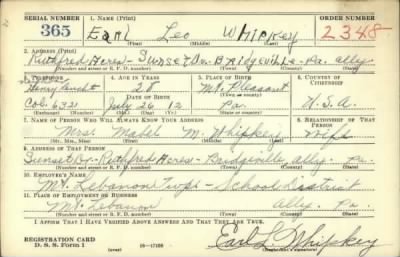 SERIAL NUMBER 1. NAME (Print) ORDER NUMBER
365 Earl Leo Whipkey 2348
(First) (Middle) (Last)
2. ADDRESS (Print)
Ruthfred Acres - Sunset Dr. Bridgeville - Pa. Alleg.
(Number and street or R. F. D. number) (Town) (County) (State)
3. TELEPHONE 4. AGE IN YEARS 5. PLACE OF BIRTH 6. COUNTRY OF CITIZENSHIP
28 Mt. Pleasant
(Town or county)
Col. 6321 July 26 12 Pa. U.S.A.
(Exchange) (Number) (Mo.) (Day) (Yr.) (State or country)
7. NAME OF PERSON WHO WILL ALWAYS KNOW YOUR ADDRESS 8. RELATIONSHIP OF THAT PERSON
Mrs. Mabel M. Whipkey Wife
(Mr., Mrs., Miss) (First) (Middle) (Last)
9. ADDRESS OF THAT PERSON
Sunset Dr. - Ruthfred Acres - Bridgeville, Alleg. Pa.
(Number and street or R. F. D. number) (Town) (County) (State)
10. EMPLOYER'S NAME
Mt. Lebanon Twp. - School District
11. PLACE OF EMPLOYMENT OR BUSINESS
Mt. Lebanon Alleg. Pa.
(Number and street or R. F. D. number) (Town) (County) (State)
I AFFIRM THAT I HAVE VERIFIED ABOVE ANSWERS AND THAT THEY ARE TRUE.
REGISTRATION CARD
D. S. S. Form 1 (over) 16-17105 Earl L. Whipkey
(Registrant's signature)